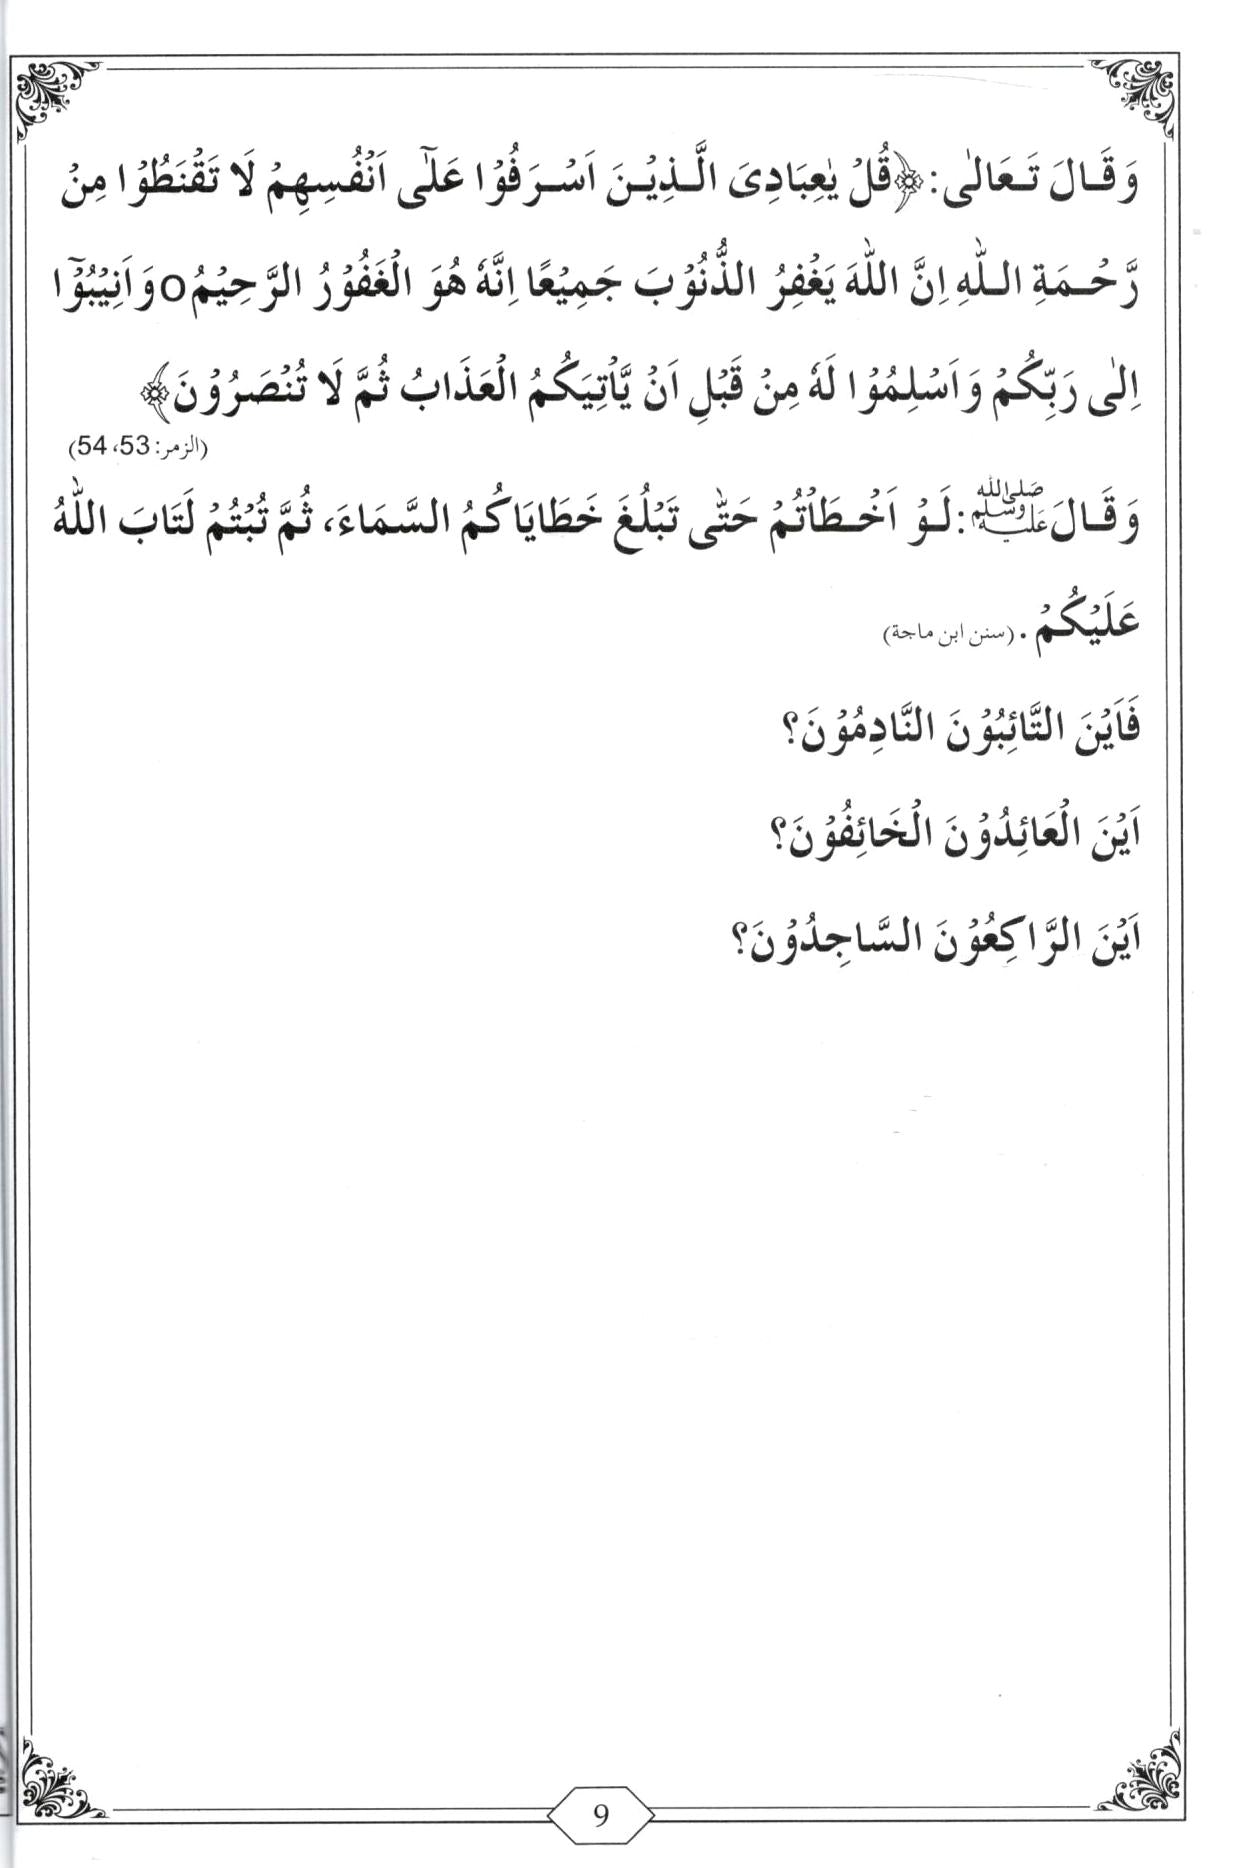 وَقَالَ تَعَالٰی: ﴿قُلْ یٰعِبَادِیَ الَّذِیْنَ اَسْرَفُوْا عَلٰٓی اَنْفُسِهِمْ لَا تَقْنَطُوْا مِنْ
رَّحْمَةِ اللّٰهِ اِنَّ اللّٰهَ یَغْفِرُ الذُّنُوْبَ جَمِیْعًا اِنَّهٗ هُوَ الْغَفُوْرُ الرَّحِیْمُo وَاَنِیْبُوْٓا
اِلٰی رَبِّكُمْ وَاَسْلِمُوْا لَهٗ مِنْ قَبْلِ اَنْ یَّاْتِیَكُمُ الْعَذَابُ ثُمَّ لَا تُنْصَرُوْنَ﴾
(الزمر: 53، 54)
وَقَالَ ﷺ: لَوْ اَخْطَاْتُمْ حَتّٰی تَبْلُغَ خَطَایَاكُمُ السَّمَاءَ، ثُمَّ تُبْتُمْ لَتَابَ اللّٰهُ
عَلَیْكُمْ. (سنن ابن ماجة)
فَاَیْنَ التَّائِبُوْنَ النَّادِمُوْنَ؟
اَیْنَ الْعَائِدُوْنَ الْخَائِفُوْنَ؟
اَیْنَ الرَّاكِعُوْنَ السَّاجِدُوْنَ؟
9